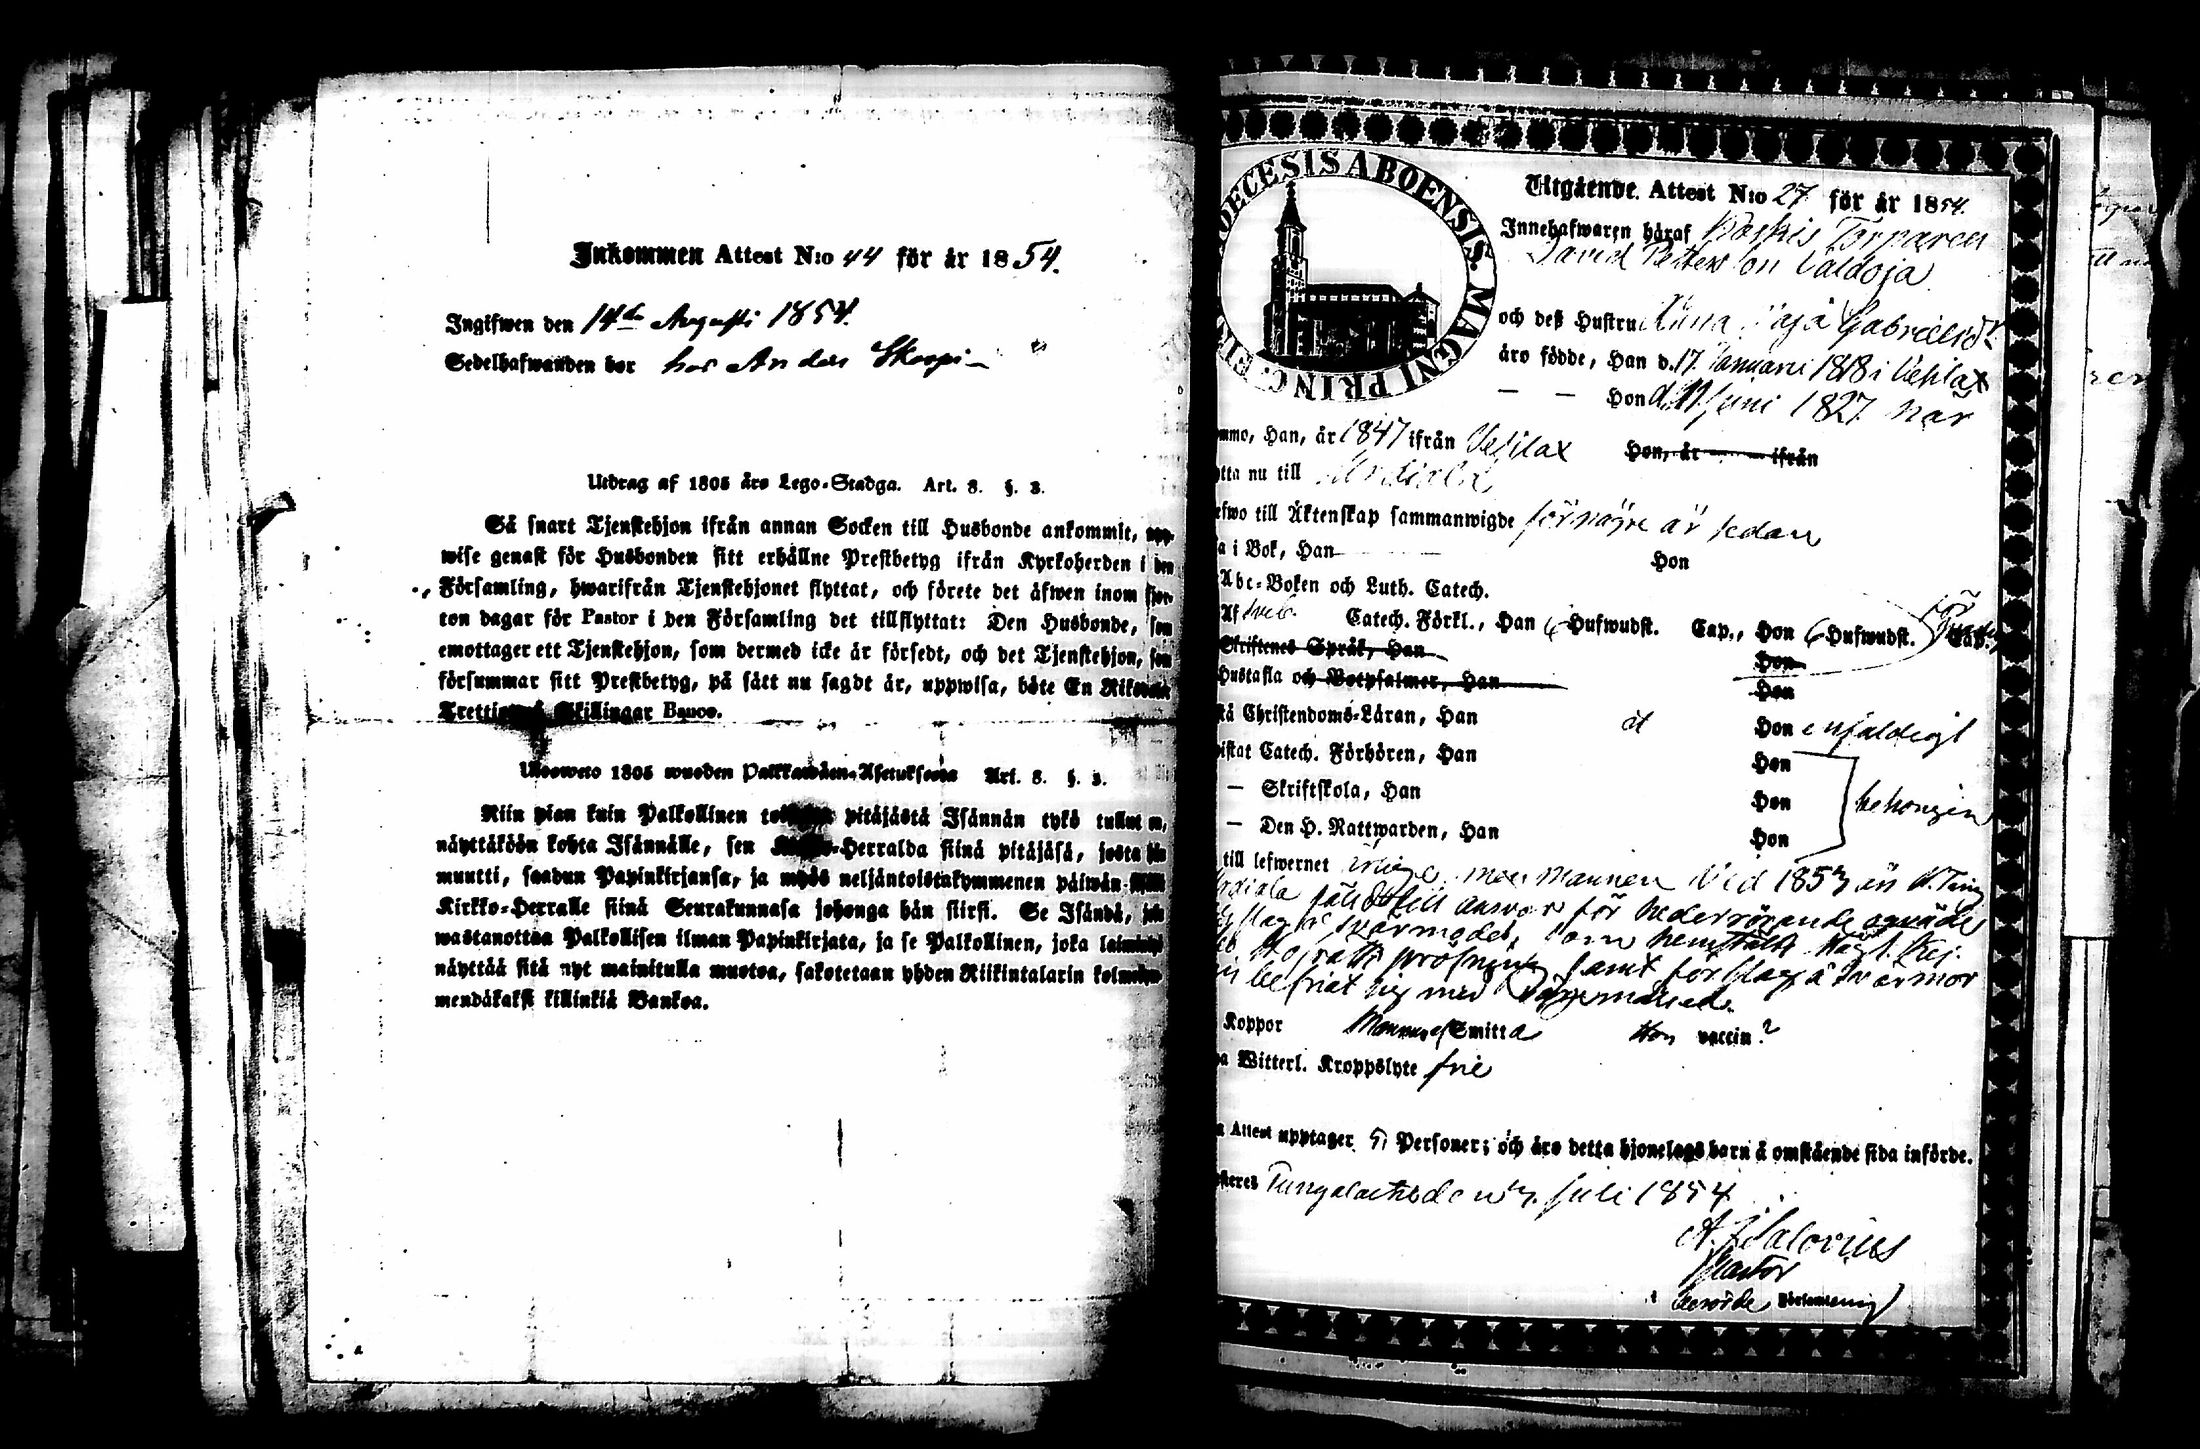 Inkommen Attest N:o 44 för år 1854.
Ingifwen den 14de Augusti 1854.
Sedelhafwanden bor hos Anders Skarpi
Utdrag af 1805 års Lego-Stadga. Art. 8. §. 3.
Så snart Tjenstehjon ifrån annan Socken till Husbonde ankommit, upp-
wise genast för Husbonden sitt erhållne Prestbetyg ifrån Kyrkoherden i den
Församling, hwarifrån Tjenstehjonet flyttat, och förete det äfwen inom fjor-
ton dagar för Pastor i den Församling det tillflyttat: Den Husbonde, som
emottager ett Tjenstehjon, som dermed icke är försedt, och det Tjenstehjon, som
försummar sitt Prestbetyg, på sätt nu sagdt är, uppwisa, böte En Riksdaler
Skillingar Banco.
Ulosweto 1805 wuoden Palkkawäen-Asetuksesta Art. 8. §. 3.
Niin pian kuin Palkollinen pitäjästä Isännän tykö tullut on,
näyttäköön kohta Isännälle, sen Kirkko-Herralda siinä pitäjäsä, josta hän
muutti, saadun Papinkirjansa, ja myös neljäntoistakymmenen päiwän sisäll
Kirkko-Herralle siinä Seurakunnasa johonga hän siirsi. Se Isändä, joka
wastanottaa Palkollisen ilman Papinkirjata, ja se Palkollinen, joka laiminlyö
näyttää sitä nyt mainitulla muotoa, sakotetaan yhden Riikintalarin kolmekym-
mendäkaksi killinkiä Bankoa.
DIOECESIS ABOENSIS. MAGNI PRINC. FIN
Utgående. Attest N:o 27 för år 1854.
Innehafwaren häraf Koskis Torparen
David Pettersson Valdoja
och deß Hustru Anna Caja Gabrielsdr
äro födde, Han d. 17 Januari 1818 i Vehlax
— — Hon d. 11 Juni 1827 här
ommo, Han, år 1847 ifrån Vehlax Hon, år ifrån
ytta nu till Urdiala
efwo till Äktenskap sammanwigde för några år sedan
a i Bok, Han Hon
Abc-Boken och Luth. Catech.
Af Sveb. Catech. Förkl., Han 6 Hufwudst. Cap., Hon 6 Hufwudst. Cap.
Skriftenes Språk, Han Hon
Hustafla och Botpsalmer, Han Hon
stå Christendoms-Läran, Han Hon enfaldigt
wistat Catech. Förhören, Han Hon
— Skriftskola, Han Hon behörigen
— Den H. Nattwarden, Han Hon
till lefwernet ärlige, men mannen vid 1853 års H. Ting
rdiala fälld till answar för hederrörande
som hemställt Högl. Kej.
Hofrätts pröfning, samt
befriat sig med
Koppor Mannen af Smitta Hon vaccin?
a Witterl. Kroppslyte frie
n Attest upptager 5 Personer; och äro detta hjonelags barn å omstående sida införde.
steres Tungalaitis den 3 Juli 1854
A. J. Salovius
Pastor